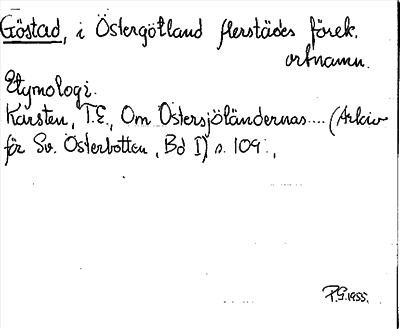 Göstad, i Östergötland flerstädes förek.
ortnamn.
Etymologi.
Karsten, T.E., Om Östersjöländernas.... (Arkiv
för Sv. Österbotten, Bd I) s. 109.,
P.G. 1955.